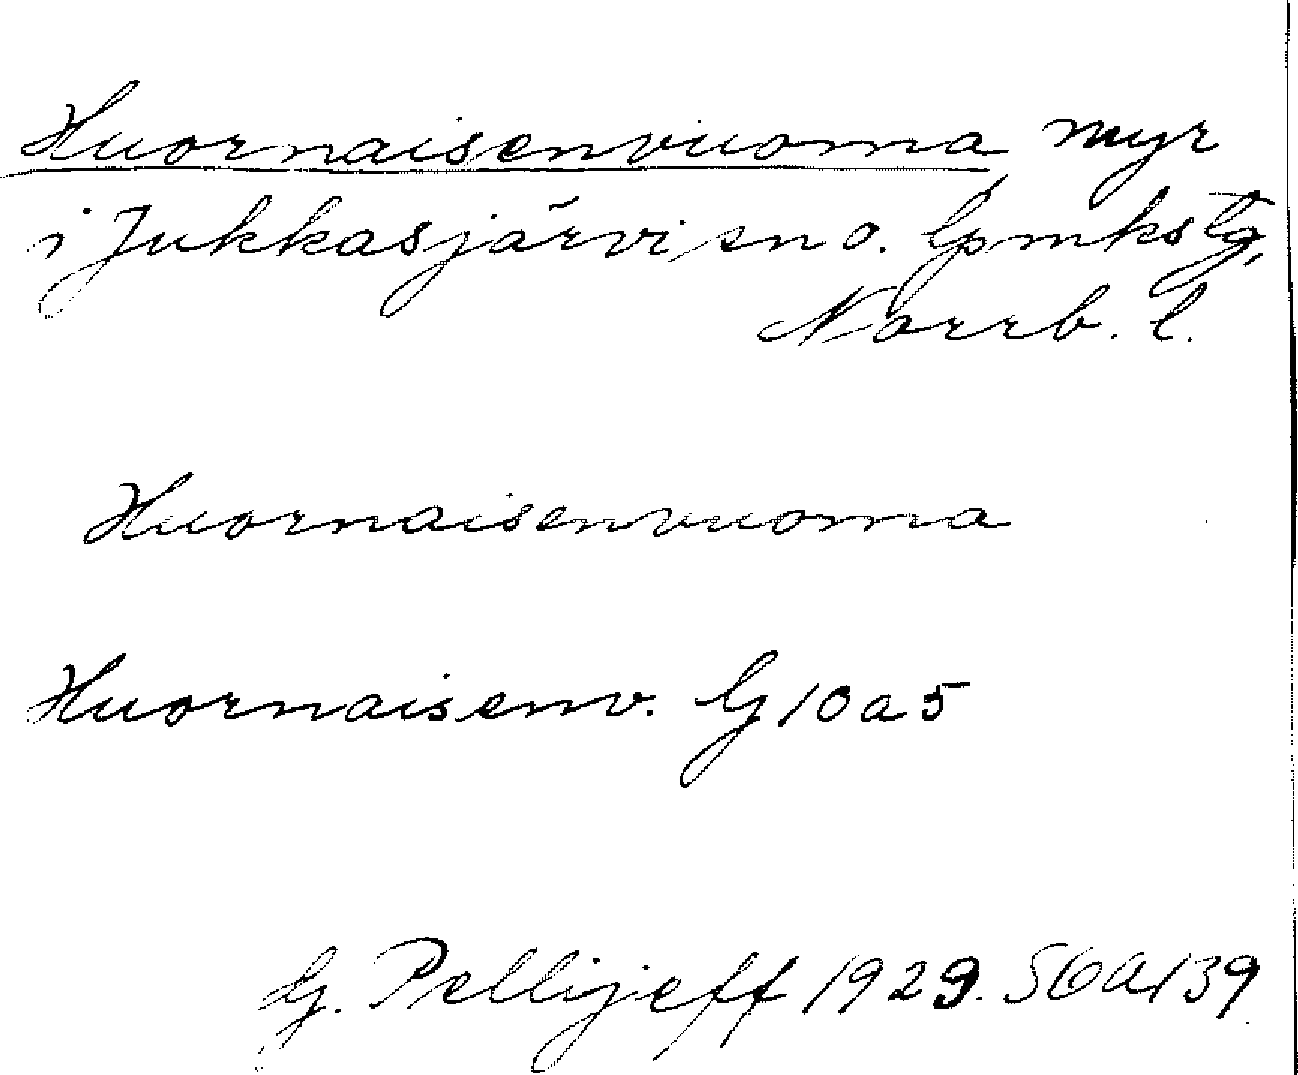 Huornaisenvuoma myr
i Jukkasjärvi sn o. lpmkstg,
Norrb. l.
Huornaisenvuoma
Huornaisenv. G 10 a 5
G. Pellijeff 1929. SOA 139